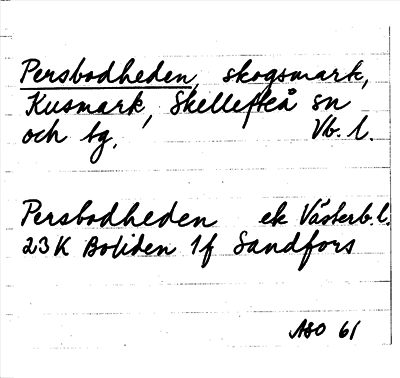 Persbodheden, skogsmark,
Kusmark, Skellefteå sn
och tg. Vb. l.
Persbodheden ek Västerb. l.
23K Boliden 1f Sandfors
ASO 61